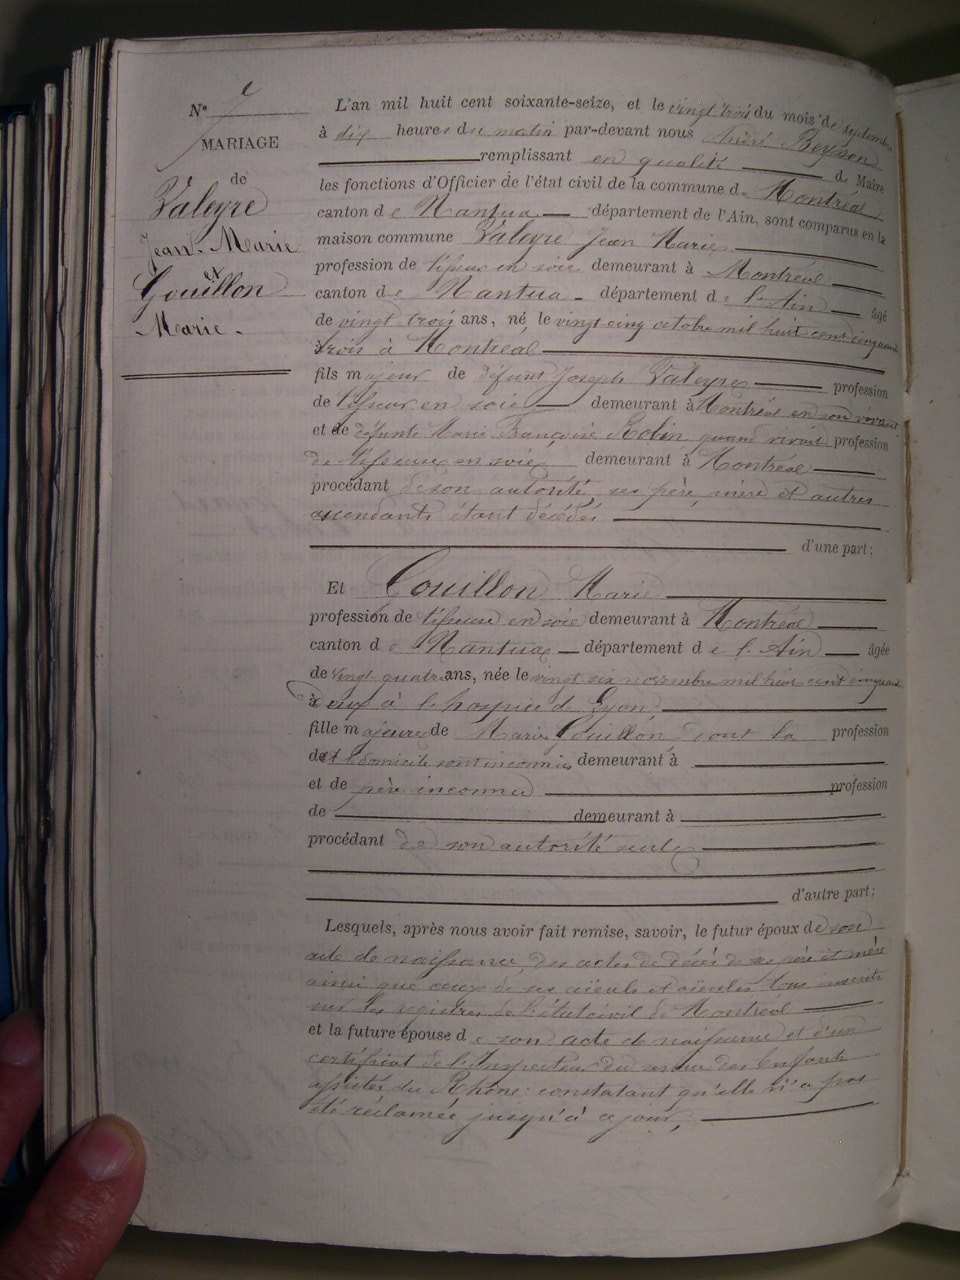 N° 7
MARIAGE
de
Valeyre
Jean-Marie
et
Gouillon
Marie.
L'an mil huit cent soixante-seize, et le vingt trois du mois de septembre
à dix heures du matin par-devant nous André
remplissant en qualité de Maire
les fonctions d'Officier de l'état civil de la commune de Montréal,
canton de Nantua département de l'Ain, sont comparus en la
maison commune Valeyre Jean Marie
profession de tisseur en soie demeurant à Montréal
canton de Nantua - département de l'Ain âgé
de vingt trois ans, né le vingt cinq octobre mil huit cent cinquante
trois à Montréal
fils majeur de défunt Joseph Valeyre profession
de tisseur en soie demeurant à Montréal en son vivant
et de défunte Marie Françoise quand vivait profession
de tisseuse en soie demeurant à Montréal
procédant de son autorité, ses père, mère et autres
ascendants étant décédés
d'une part;
Et Gouillon Marie
profession de tisseuse en soie demeurant à Montréal
canton de Nantua département de l'Ain âgée
de vingt quatre ans, née le vingt six novembre mil huit cent cinquante
deux à l'hospice de Lyon
fille majeure de Marie Gouillon dont la profession
de et le domicile sont inconnus demeurant à
et de père inconnu profession
de demeurant à
procédant de son autorité seule
d'autre part;
Lesquels, après nous avoir fait remise, savoir, le futur époux de son
acte de naissance, des actes de décès de ses père et mère
ainsi que ceux de ses aïeuls et aïeules tous inscrits
sur les registres de l'état civil de Montréal
et la future épouse de son acte de naissance et d'un
certificat de l'Inspecteur du service des Enfants
assistés du Rhône: constatant qu'elle n'a pas
été réclamée jusqu'à ce jour,